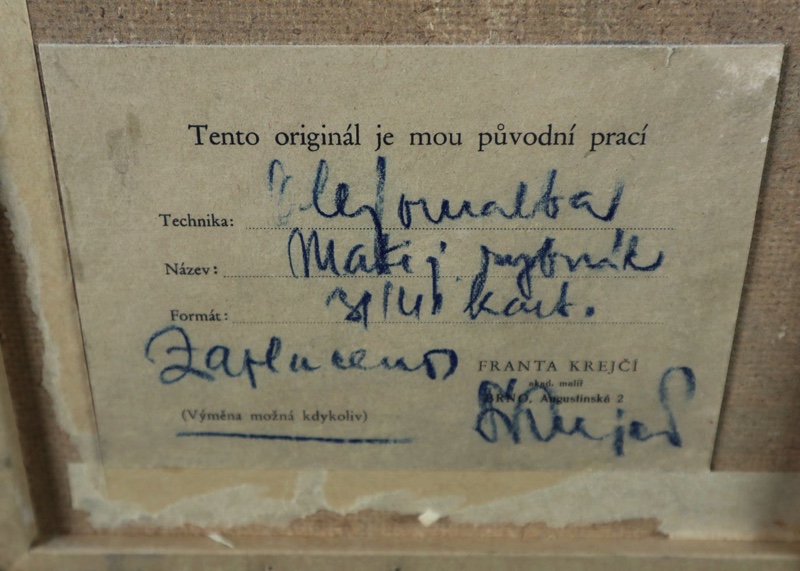 Tento originál je mou původní prací
Technika: Olejomalba
Název: rybník
Formát: kart.
Zaplaceno FRANTA KREJČÍ
akad. malíř
BRNO, Augustinská 2
(Výměna možná kdykoliv)